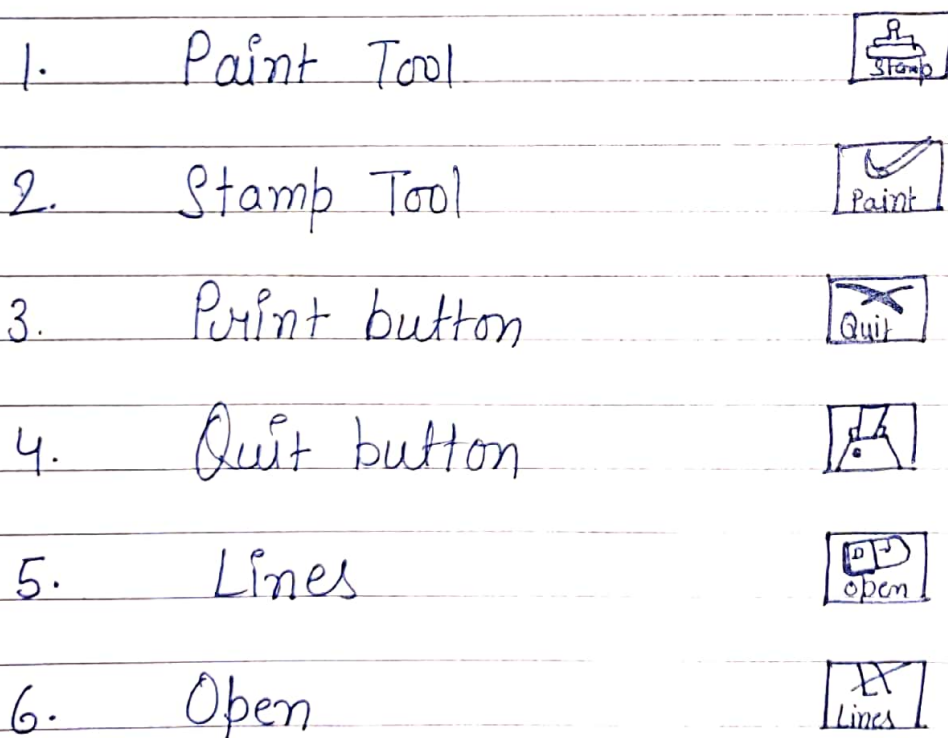 1. Paint Tool Stamp
2. Stamp Tool Paint
3. Print button Quit
4. Quit button
5. Lines Open
6. Open Lines